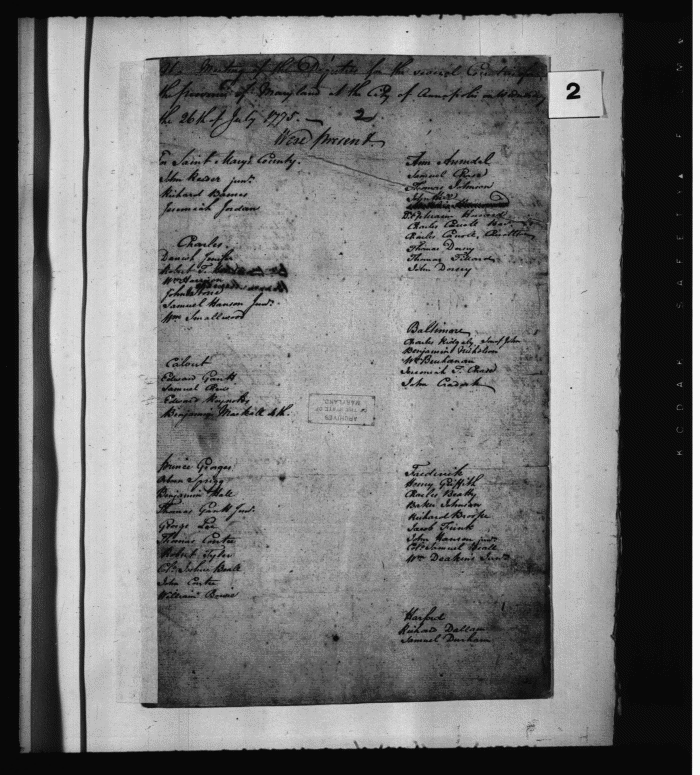 Meeting of the Deputies for the several Counties of
the province of Maryland at the City of Annapolis on Wednesday
the 26th of July 1775.
2
Were present
For Saint Mary's County.
John Reeder junr.
Richard Barnes
Jeremiah Jordan
Charles.
Daniel Jenifer
Robert T.
Wm Harrison
John
Samuel Hanson Junr.
Wm Smallwood
Calvert
Edward Gantt
Samuel Chew
Edward Reynolds
Benjamin Mackall 4th.
Prince Georges
Osborn Sprigg
Benjamin Hall
Thomas Gantt Junr.
George Lee
Thomas Contee
Robert Tyler
Col. Joshua Beall
John Contee
William Bowie
Ann Arundel
Samuel Chase
Thomas Johnson
John Hall
Ephraim Howard
Charles Carroll
Charles Carroll, Carrollton
Thomas Dorsey
Thomas
John Dorsey
Baltimore
Charles Ridgely Son of John
Benjamin Nicholson
Wm Buchanan
Jeremiah T. Chase
John Cradock
Frederick
Henry Griffith
Charles Beatty
Baker Johnson
Richard Brooke
Jacob Funk
John Hanson junr.
Col. Samuel Beall
Wm Deakins Junr.
Harford
Richard Dallam
Samuel Durham
ARCHIVES
OF THE STATE OF
MARYLAND
2
KODAK
SAFETY